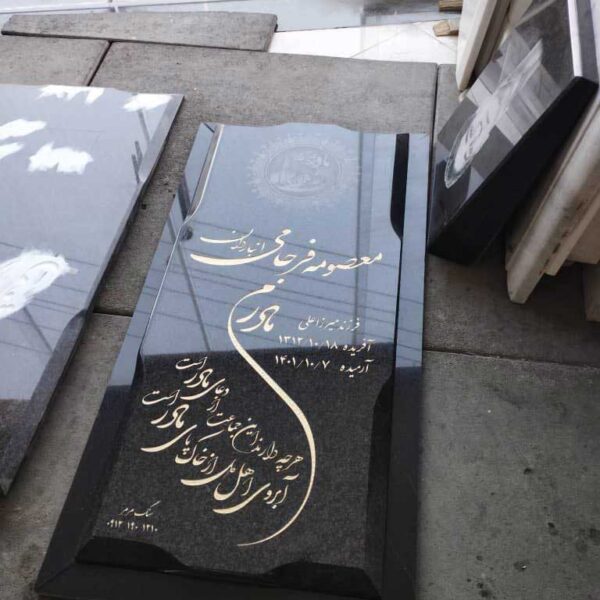 معصومه فرجامی
انبارداران
مادرم
فرزند میرزاعلی
آفریده ۱۳۱۲/۱۰/۱۸
آرمیده ۱۴۰۱/۱۰/۷
هرچه دارند این جماعت از دعای مادر است
آبروی اهل دل از خاک پای مادر است
سنگ مرمر
۰۹۱۲ ۱۹۰ ۱۲۱۰